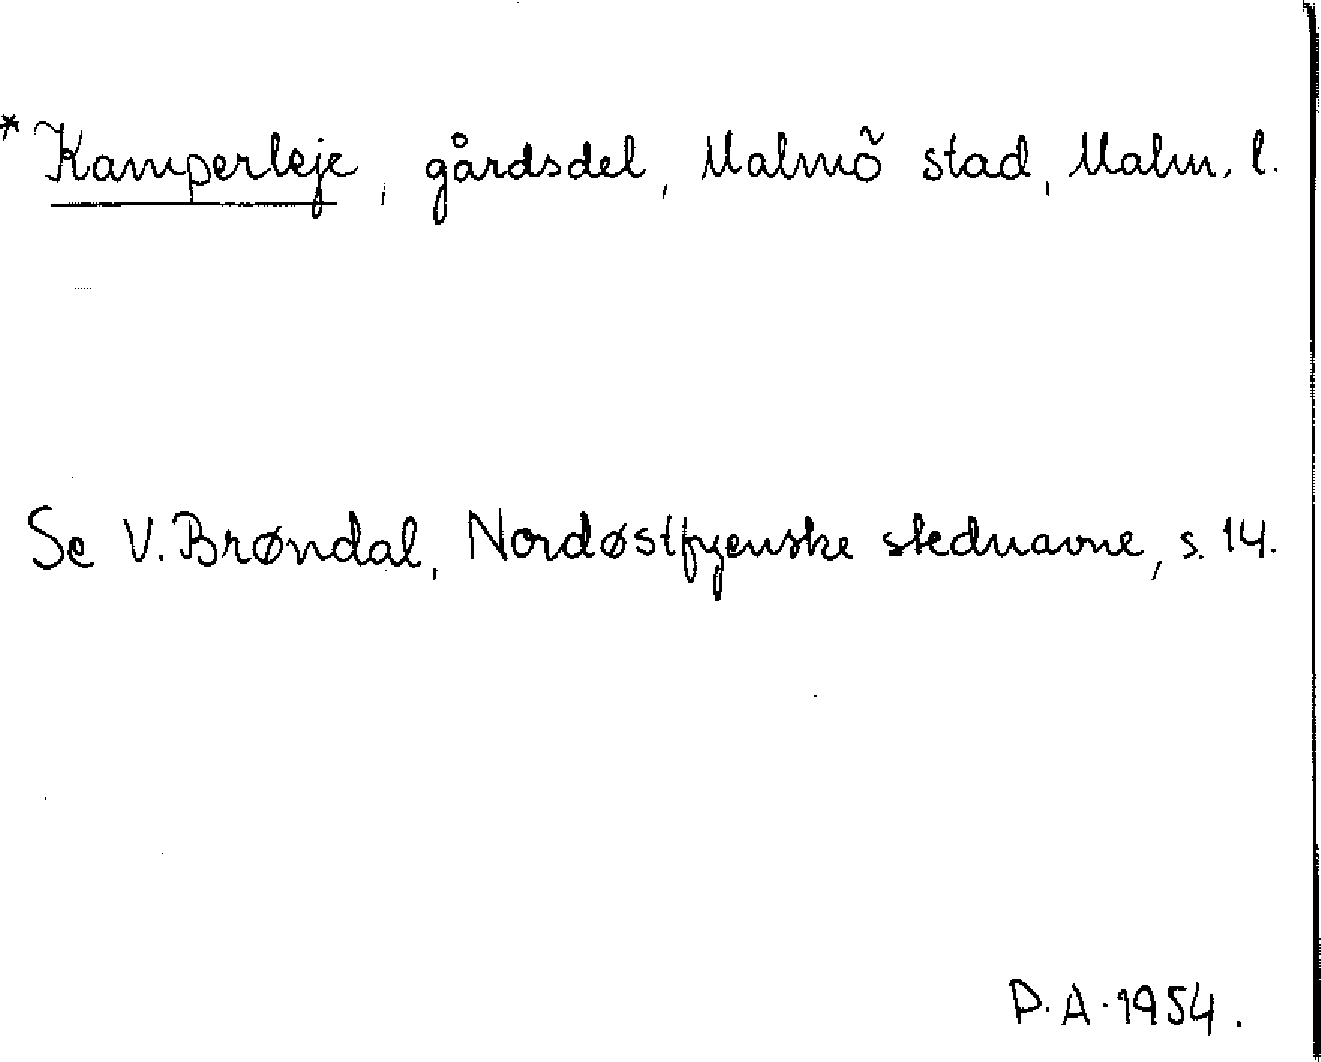 *Kamperleje, gårdsdel, Malmö stad, Malm. l.
Se V. Brøndal, Nordøstfyenske stednavne, s. 14.
P. A. 1954.